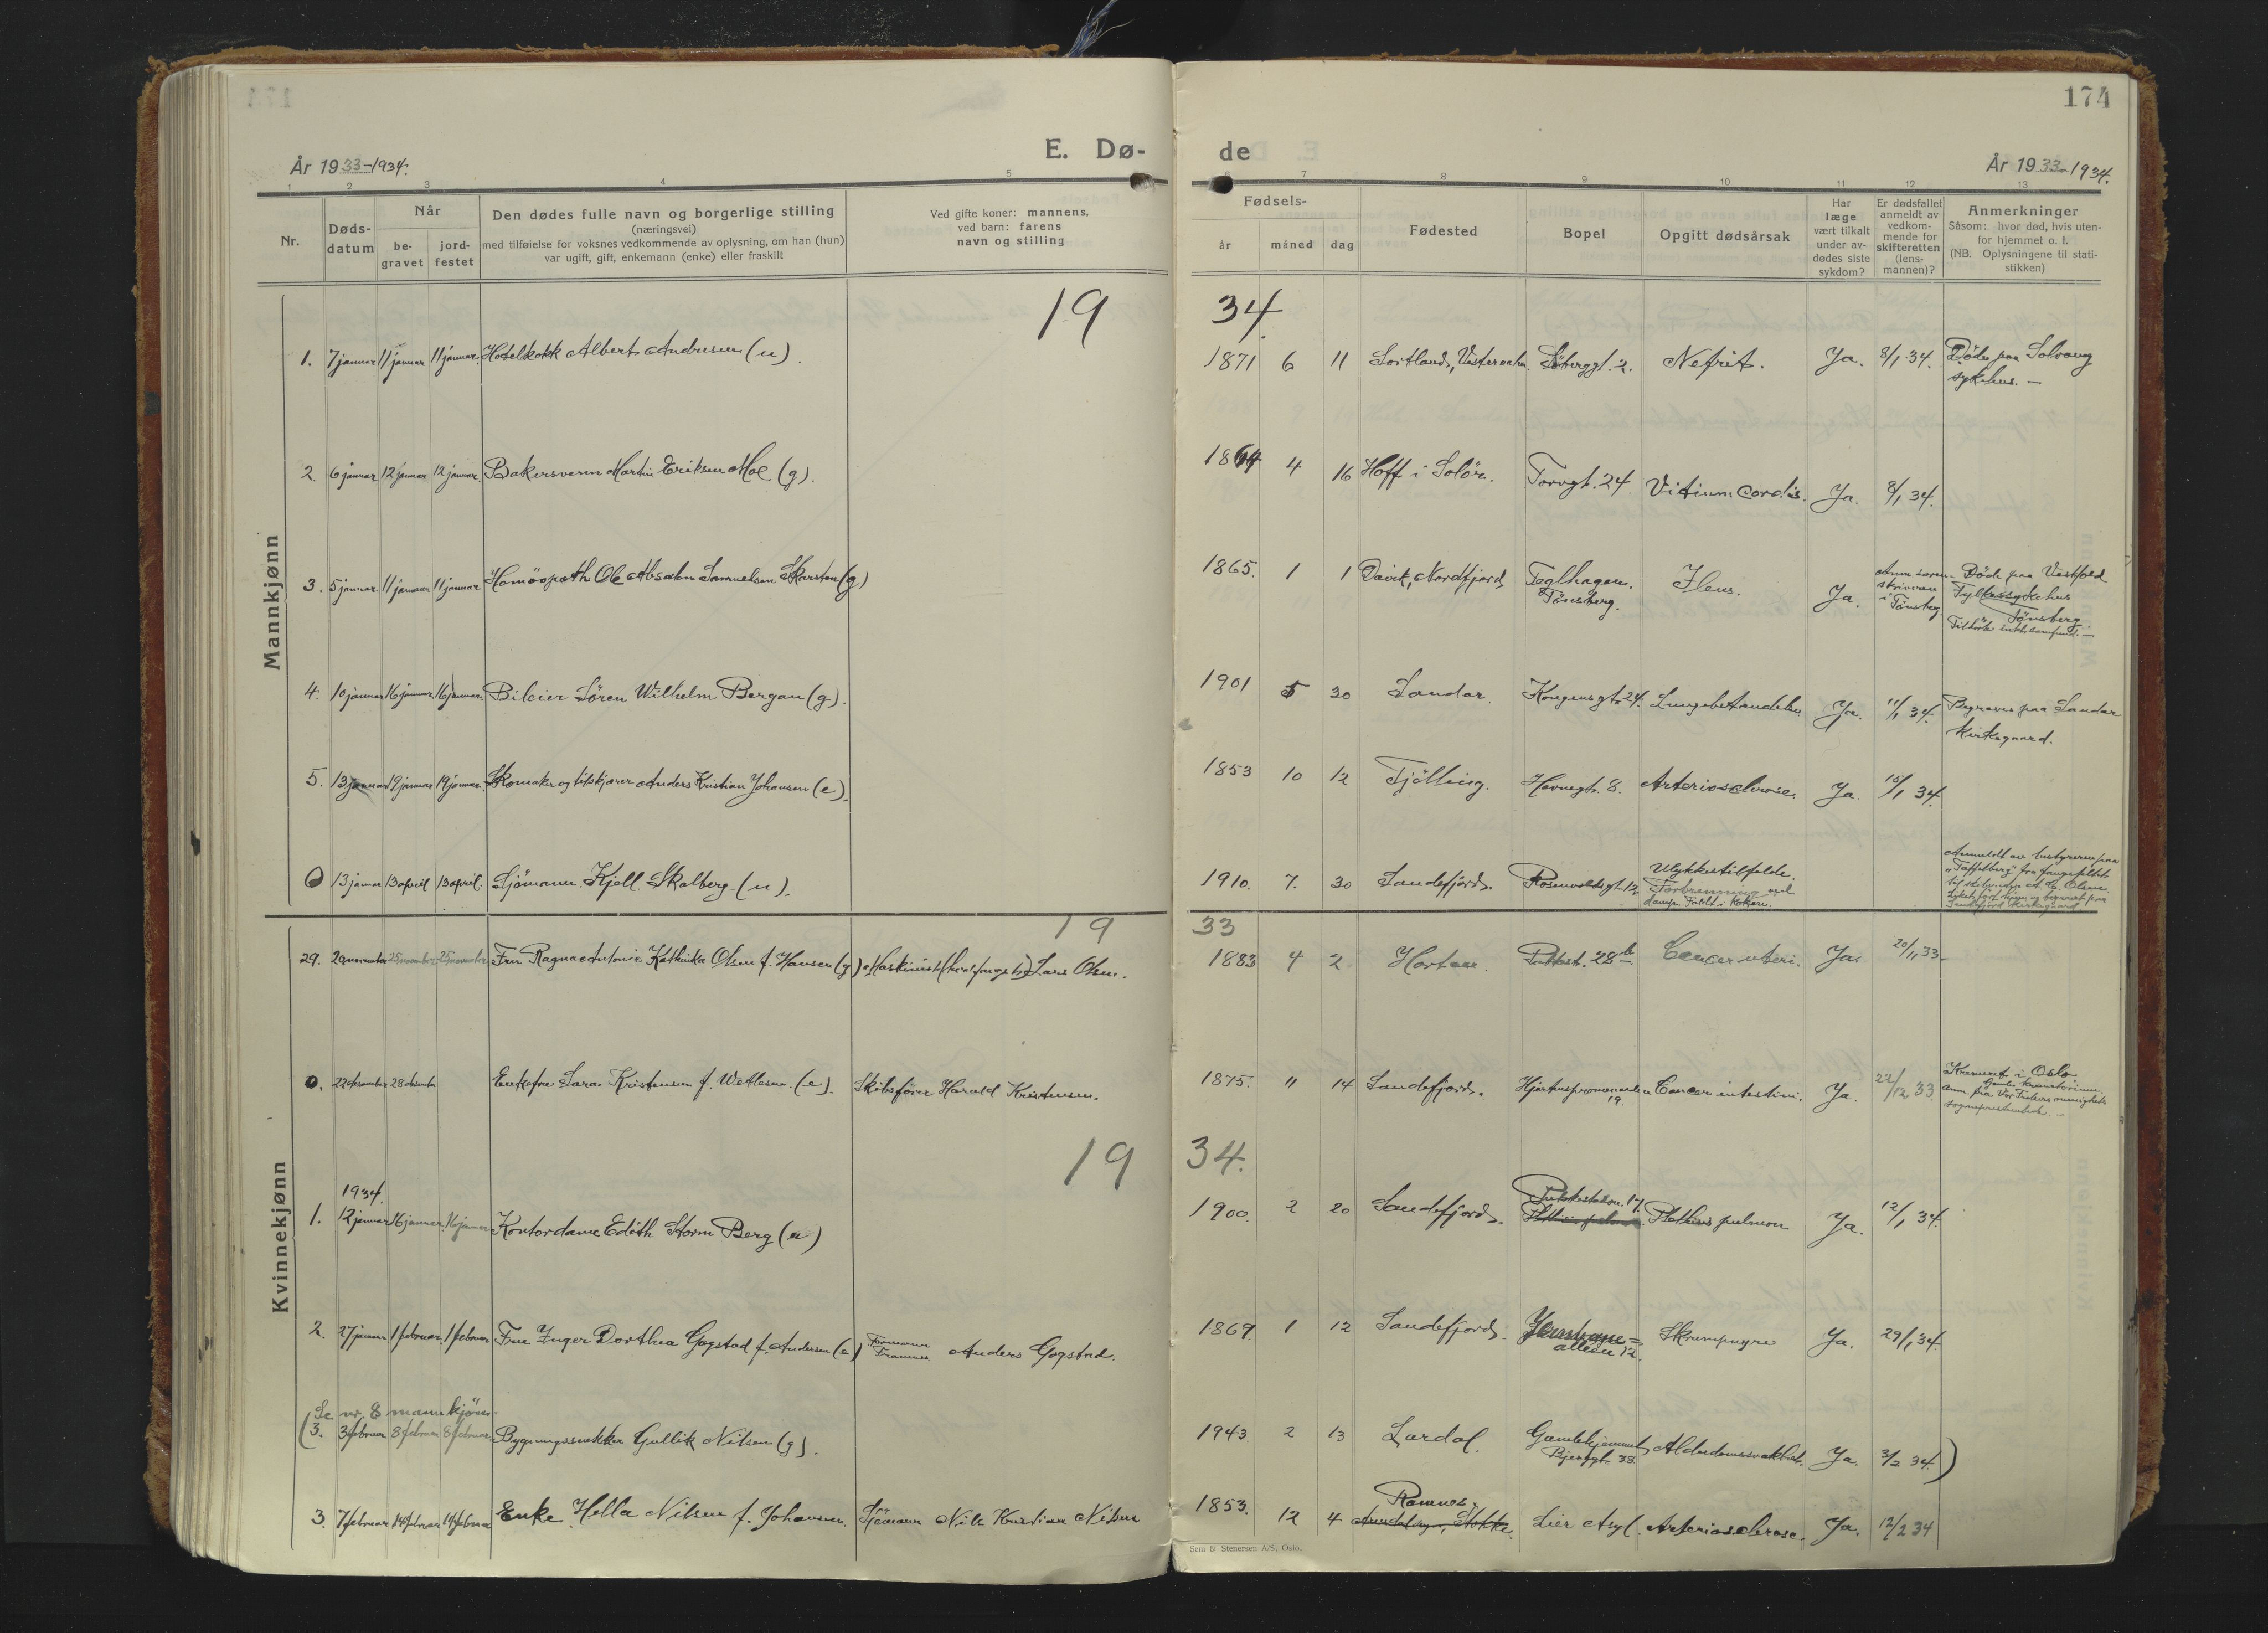 174
E. Dø- de
År 1933-1934.
År 1933-1934.
1 2 3 4 5 7 8 9 10 11 12 13
Nr.
Døds-
datum
Når
be-
gravet
jord-
festet
Den dødes fulle navn og borgerlige stilling
(næringsvei)
med tilføielse for voksnes vedkommende av oplysning, om han (hun)
var ugift, gift, enkemann (enke) eller fraskilt
Ved gifte koner: mannens,
ved barn: farens
navn og stilling
Fødsels-
år måned dag
Fødested
Bopel
Opgitt dødsårsak
Har
læge
vært tilkalt
under av-
dødes siste
sykdom?
Er dødsfallet
anmeldt av
vedkom-
mende for
skifteretten
(lens-
mannen)?
Anmerkninger
Såsom: hvor død, hvis uten-
for hjemmet o. l.
(NB. Oplysningene til stati-
stikken)
Mannkjønn
19 34.
1. 7 januar 11 januar 11 januar. Hotelkokk Albert Andresen (u). 1871 6 11 Sortland, Søberggt. 2. Nefrit. Ja. 8/1 34. Døde paa Solvang
sykehus. —
2. 6 januar 12 januar 12 januar. Bakersvenn Martin Eriksen Moe (g). 4 16 Hoff i Solør. Torvgt. 24. Vitium Cordis. Ja. 8/1 34.
3. 5 januar 11 januar 11 januar Homöopath Ole Absalon Samuelsen Skarsten (g) 1865. 1 1 Davik, Nordfjord Teglhagen. Ileus. Ja. Døde paa Vestfold
Tønsberg. skriveren Fylkessykehus
i Tønsberg Tønsberg.
4. 10 januar 16 januar 16 januar. Bileier Søren Wilhelm Bergan (g). 1901 5 30 Sandar. Kongensgt. 24. Lungebetændelse Ja. 11/1 34. Begraves paa Sandar
kirkegaard.
5. 13 januar 19 januar 19 januar. Skomaker og tilskjærer Anders Kristian Johansen (e). 1853 10 12 Tjölling. Havnegt. 8. Arteriosclerose. Ja. 15/1 34.
0 13 januar 13 april 13 april. Sjömann Kjell Skalberg (u). 1910. 7. 30 Sandefjord. Rosenvoldsgt. 12. Ulykkestilfelde.
Forbrenning ved
damp. Faldt i kokeri.
Anmeldt av bestyreren paa
"Taffelberg" fra fangstfeltet
Sandefjord kirkegaard
Kvinnekjønn
19 33
29. 20 november 25 november 25 november Fru Ragna Antonie Kathinka Olsen f. Hansen (g) Maskinist Lars Olsen. 1883 4 2 Horten. 28 b. Cancer uteri. Ja. 20/11 33.
0. 22 desember 28 desember Enkefru Sara Kristensen f. Wetlesen. (e). Skibsfører Harald Kristensen. 1875. 11 14 Sandefjord. Hjertnespromenaden Cancer intestini. Ja. 22/12 33 Kremert i Oslo
19.
19 34.
1934.
1. 12 januar 16 januar. 16 januar Kontordame Edith Storm Berg (u) 1900. 2 20 Sandefjord. Phthisis pulmon Ja. 12/1 34.
2. 27 januar 1 februar 1 februar Fru Inger Dorthea Gogstad f. Andersen (e) Anders Gogstad. 1869. 1 12 Sandefjord. Skrumpnyre Ja. 29/1 34.
alleen 12.
Se nr. 8 mannkjön.
(3. 3 februar 8 februar 8 februar. Bygningssnekker Gullik Nilsen (g). 1943. 2 13 Lardal. Gamlehjemmet Alderdomssvakhet. Ja. 3/2 34.)
Bjerggt. 38
3. 7 februar 14 februar 14 februar Enke Hella Nilsen f. Johansen. Sjömann Nils Kristian Nilsen 1853. 12 4 Ramnes. Stokke. Lier Asyl. Arteriosclerose. Ja. 12/2 34
Sem & Stenersen A/S, Oslo.